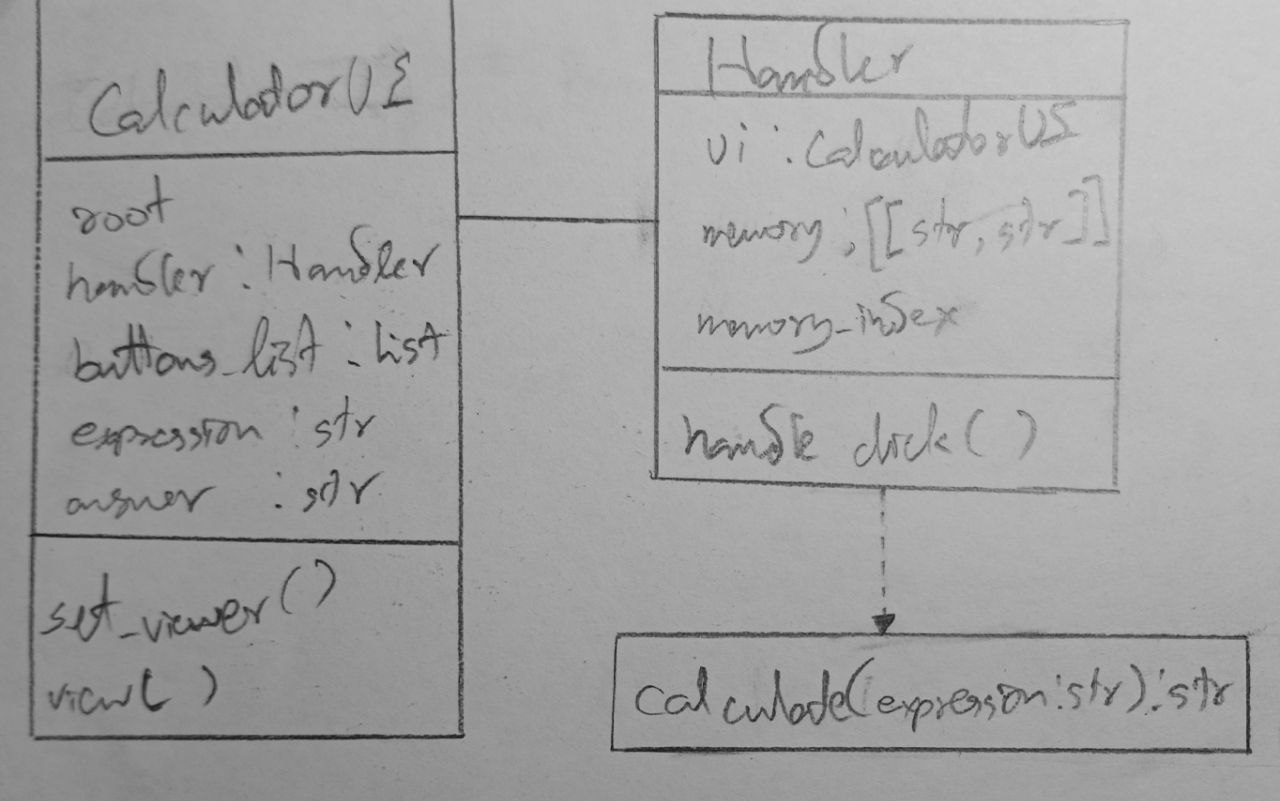 CalculatorUI
root
handler : Handler
buttons_list : list
expression : str
answer : str
set_viewer()
view()
Handler
ui : CalculatorUI
memory : [[str, str]]
memory_index
handle click()
calculate(expression:str):str